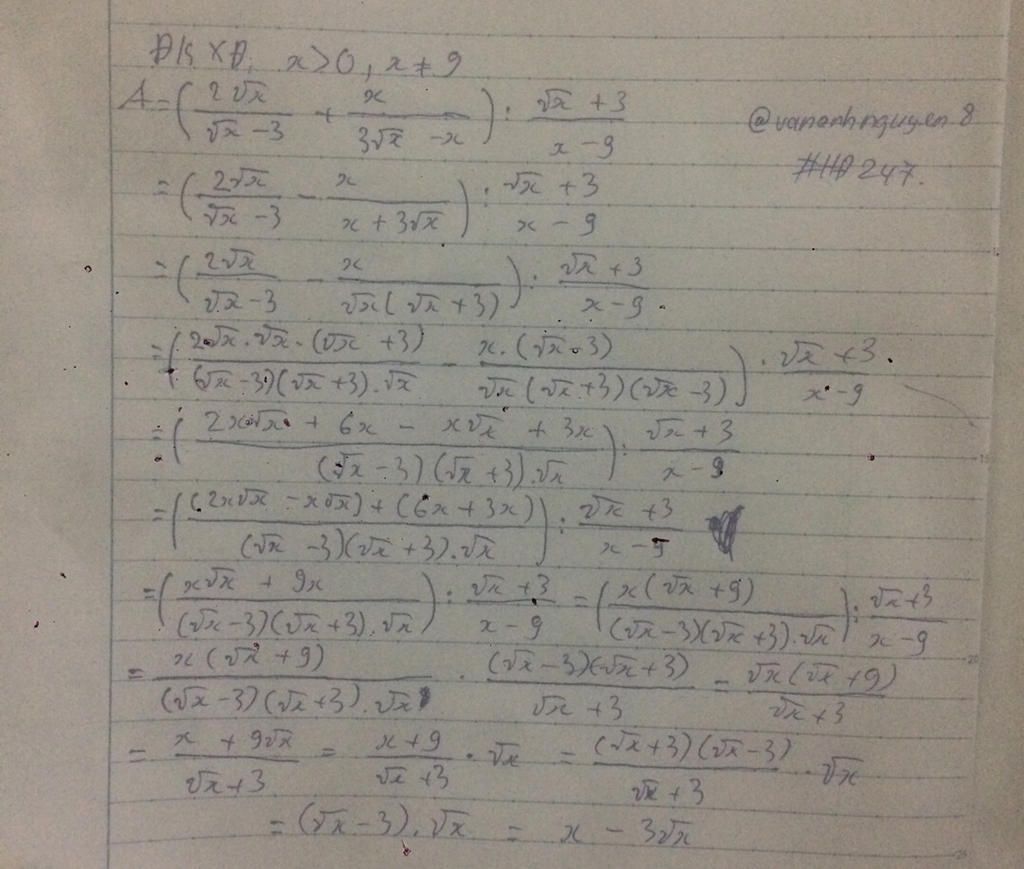 ĐKXĐ: x>0, x≠9
A = (2√x/(√x-3) + x/(3√x-x)) : (√x+3)/(x-9)
@vananhnguyen8
#HĐ247.
= (2√x/(√x-3) - x/(x+3√x)) : (√x+3)/(x-9)
= (2√x/(√x-3) - x/(√x(√x+3))) : (√x+3)/(x-9)
= (2√x.√x.(√x+3)/((√x-3)(√x+3).√x) - x.(√x-3)/(√x(√x+3)(√x-3))) : (√x+3)/(x-9)
= ((2x√x + 6x - x√x + 3x)/((√x-3)(√x+3).√x)) : (√x+3)/(x-9)
= (((2x√x - x√x) + (6x+3x))/((√x-3)(√x+3).√x)) : (√x+3)/(x-9)
= ((x√x + 9x)/((√x-3)(√x+3).√x)) : (√x+3)/(x-9) = (x(√x+9)/((√x-3)(√x+3).√x)) : (√x+3)/(x-9)
= x(√x+9)/((√x-3)(√x+3).√x) . (√x-3)(√x+3)/(√x+3) = √x(√x+9)/(√x+3)
= (x+9√x)/(√x+3) = (x+9)/(√x+3) . √x = (√x+3)(√x-3)/(√x+3) . √x
= (√x-3).√x = x - 3√x